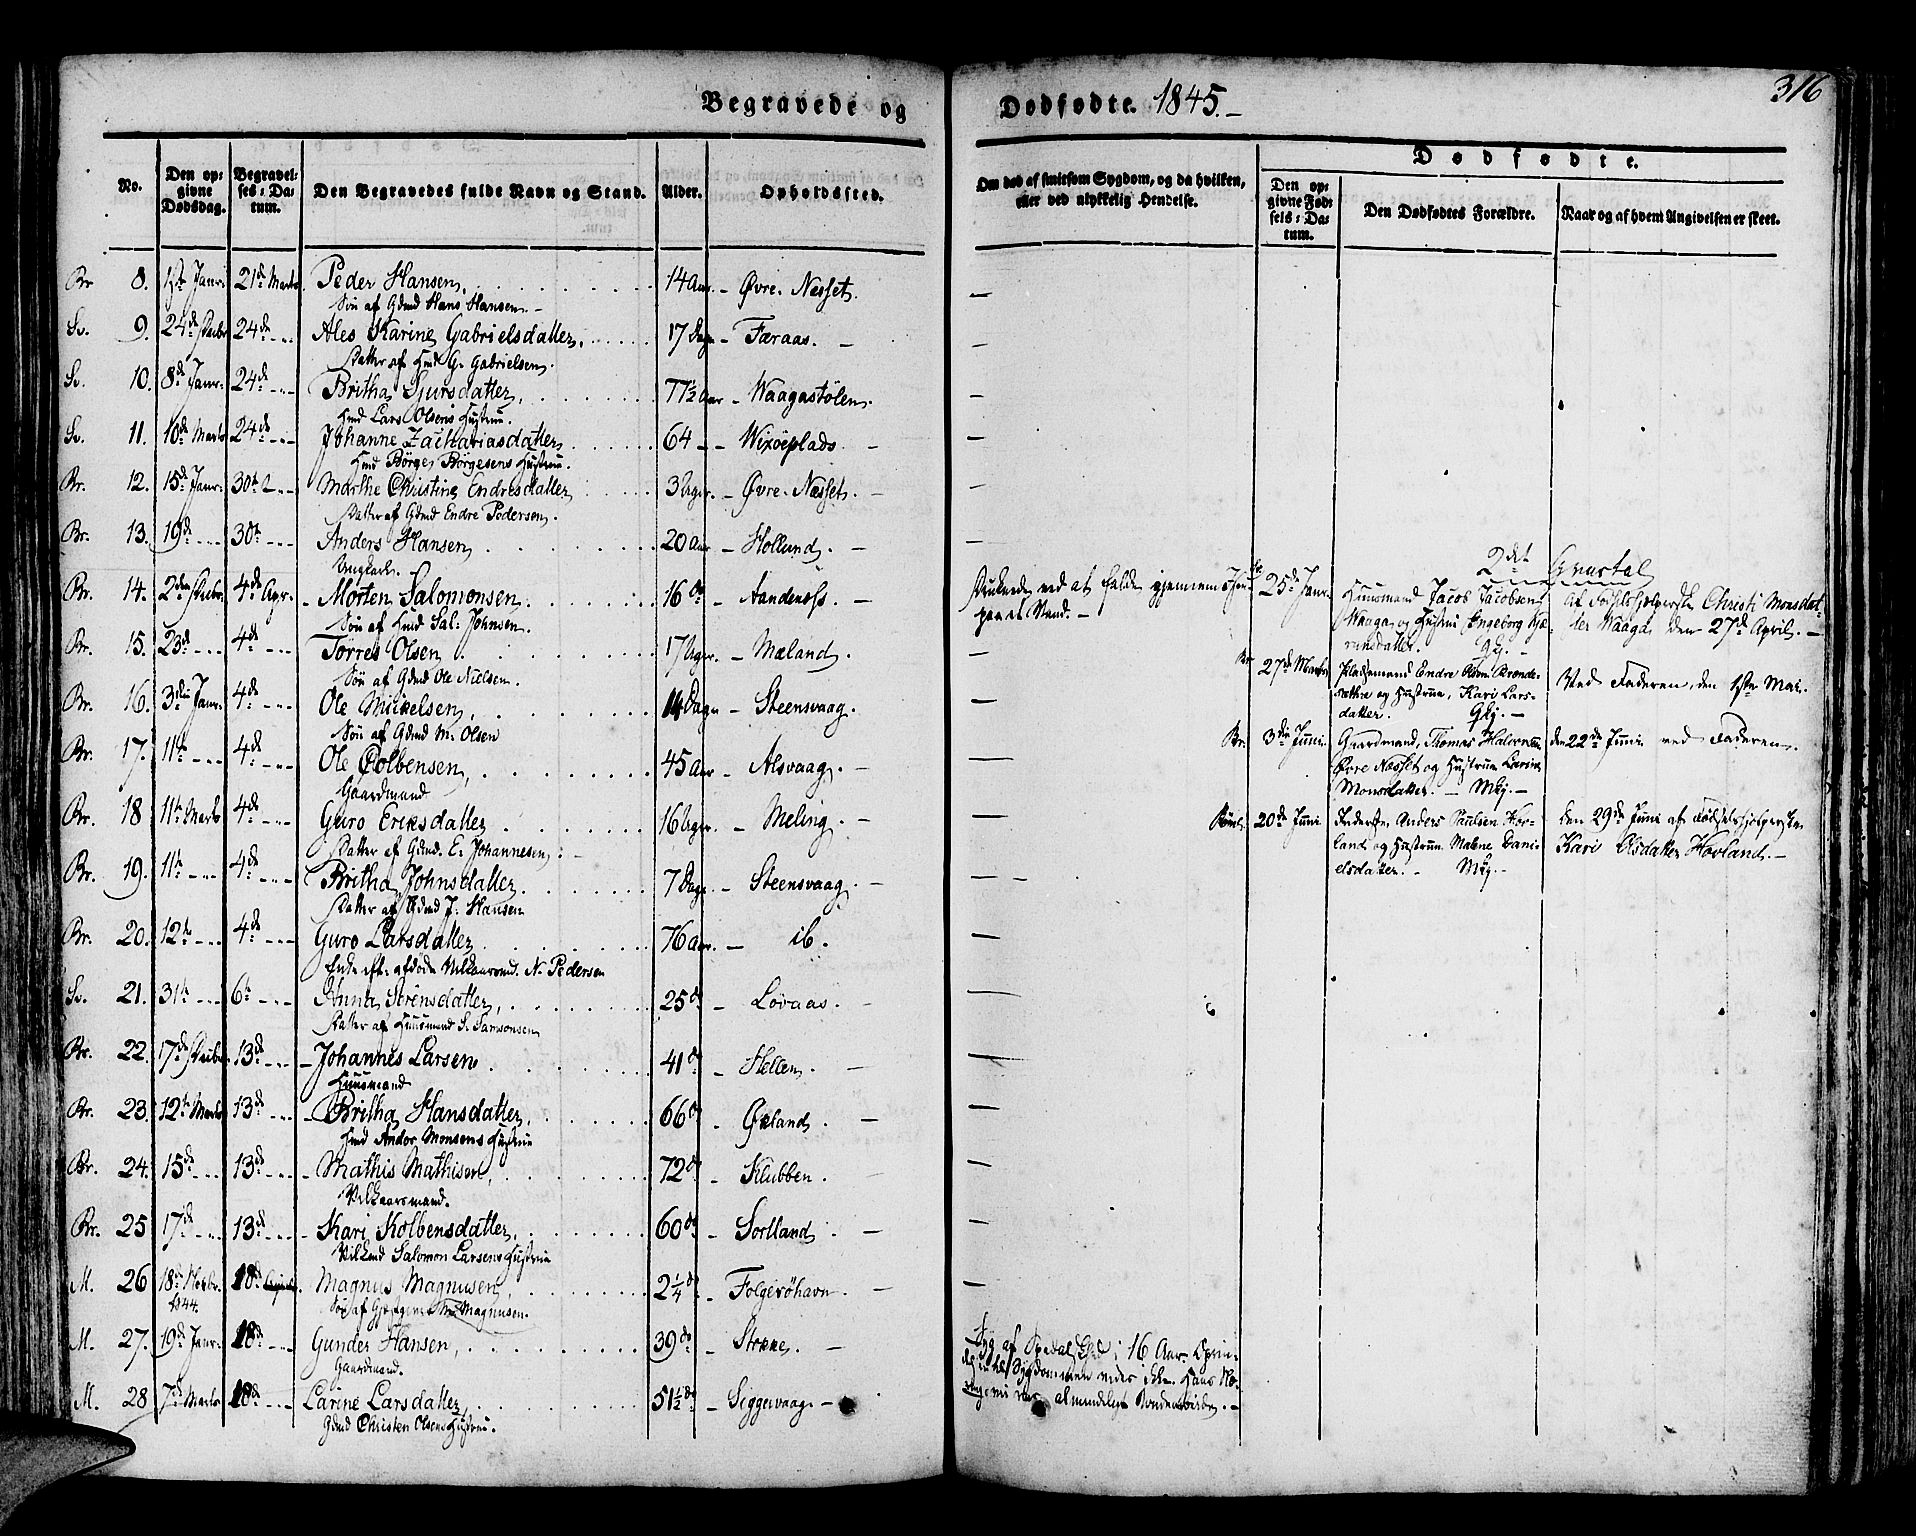 Begravede og
No. Den opgivne Dødsdag. Begravelses-Datum. Den Begravedes fulde Navn og Stand. Alder. Opholdssted.
Br 8. Janr. 21de Marts Peder Hansen. 14 Aar. – Øvre Nesset.
Søn af Gdmd Hans Hansen. –
Sv. 9. 24de 24de Ales Karine Gabrielsdatter. 17 Dage – Færaas. –
Datter af Hmd G. Gabrielsen.
Sv. 10. 8de Janr. 24de Britha Sjursdatter, 77½ Aar – Waagastølen.
Hmd Lars Olsens Hustrue.
Sv. 11. 16de Marts 24de Johanne Zachariasdatter 64 – Wixøeplads –
Hmd Børge Børgesens Hustrue.
Br. 12. 15de Janr. 30te Marthe Christine Endresdatter 3 Uger. – Øvre Næsset. –
Datter af Gdmd Endre Pedersen.
Br. 13. 19de 30te Anders Hansen 20 Aar – Hollund. –
Ungkarl. –
Br. 14. 4de Apr. – Morten Salomonsen. 16 do –
Søn af Hmd Sal: Johnsen.
Br. 15. 23de 4de Torres Olsen 17 Uger. – Mæland.
Søn af Gdmd Ole Nielsen.
Br. 16. 3die Janr. 4de Ole Mickelsen, 14 Dage – Steensvaag.
Søn af Gdmd M. Olsen
Br. 17. 11te 4de Ole Colbensen, 45 Aar – Alsvaag. –
Gaardmand
Br. 18 11te Marts 4de Guro Eriksdatter 16 Uger. – Meling. –
Datter af Gdmd. E. Johannesen.
Br. 19. 11te 4de Britha Johnsdatter. 7 Dage – Steensvaag. –
Datter af Gdmd J. Hansen
Br. 20. 12te 4de Guro Larsdatter 76 Aar. – ib.
Enke eft. afdøde Vilkaarsmd. N. Pedersen
Sv. 21. 31te 6te Anna Sørensdatter, 25 do – Løvaas. –
Datter af Huusmand S. Samsonsen
Br. 22. 17de 13de – Johannes Larsen 41 do – Hellen. –
Huusmand
Br. 23. 12te Marts 13de – Britha Hansdatter, 66 do – Økland. –
Hmd Andor Monsens Hustrue
Br. 24. 15de 13de – Mathis Mathisen, 72 do – Klubben.
Vilkaarsmand.
Br. 25 17de 13de – Kari Kolbensdatter, 60 do – Sortland. –
Vilkmd Salomon Larsens Hustrue
M. 26 18de Novbr. 1844. 18de April Magnus Magnusen, 2¼ do – Folgerøhavn. –
Søn af Gjestgiver M. Magnusen.
M. 27. 19de Janr. 18de Gunder Hansen, 39 do – Stokke. –
Gaardmand.
M. 28 7de Marts 18de Larine Larsdatter, 51½ do – Siggervaag. –
Gdmd Christen Olsens Hustrue.
Dødfødte. 1845. –
316
Om død af smitsom Sygdom, og da hvilken, eller ved ulykkelig Hendelse.
Dødfødte.
Den opgivne Fødsels-Datum. Den Dødfødtes Forældre. Naar og af hvem Angivelsen er skeet.
Druknede ved at falde gjennem
paa et Vand. –
2det Qvartal
25de Janr. Huusmand Jacob Jacobsen
Waage og Hustrue Ingeborg
Qkj. –
af Fødselshjelperske Christi Monsdatter
Waage den 27de April. –
Br 27de Marts Pladsemand Endre Olsen
og Hustrue, Kari Larsdatter.
Qkj. –
Ved Faderen, den 1ste Mai.
Br. 3die Juni Gaardmand, Thomas
Øvre Næsset og Hustrue
Monsdatter. – Mkj. –
den 22de Juni ved Faderen.
20de Juni Inderste, Anders Paulsen Hovland
og Hustrue Malene Danielsdatter. –
Mkj. –
den 29de Juni af Fødselshjelperske
Kari Olsdatter Hovland. –
Syg af Spedalskhed i 16 Aar.
Sygdommen
almindeligt